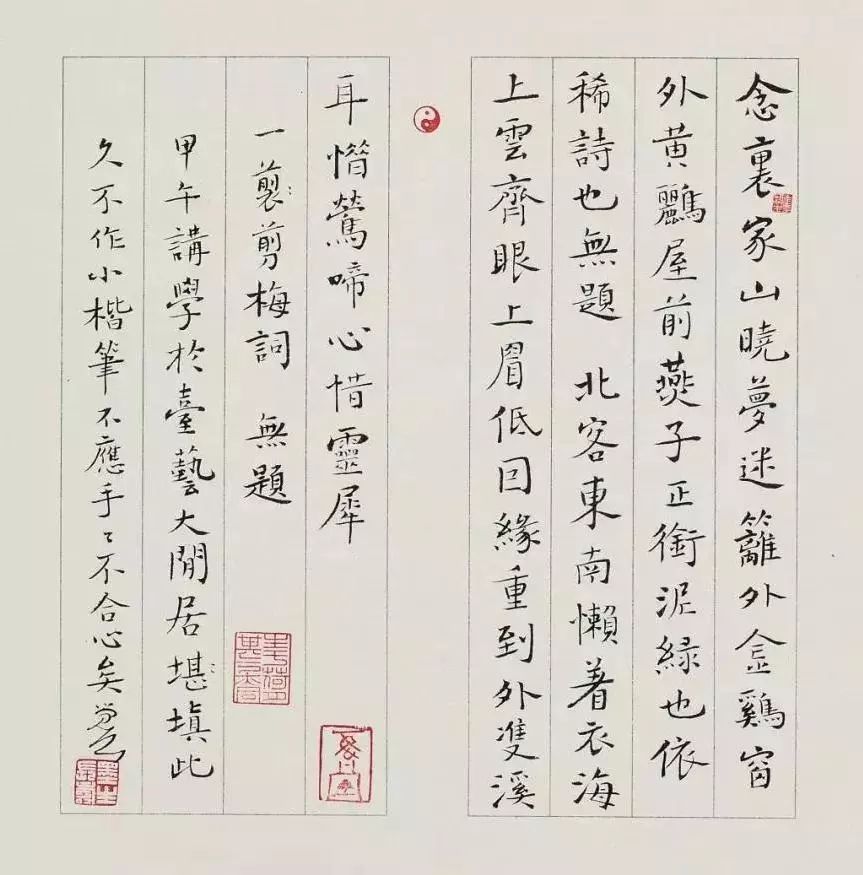 念裏家山曉夢迷籬外金鷄窗
外黄鸝屋前燕子正銜泥緑也依
稀詩也無題 北客東南懶着衣海
上雲齊眼上眉低回緣重到外雙溪
耳鶯啼心惜靈犀
一剪梅詞 無題
甲午講學於臺藝大閒居堪填此
久不作小楷筆不應手〻不合心矣